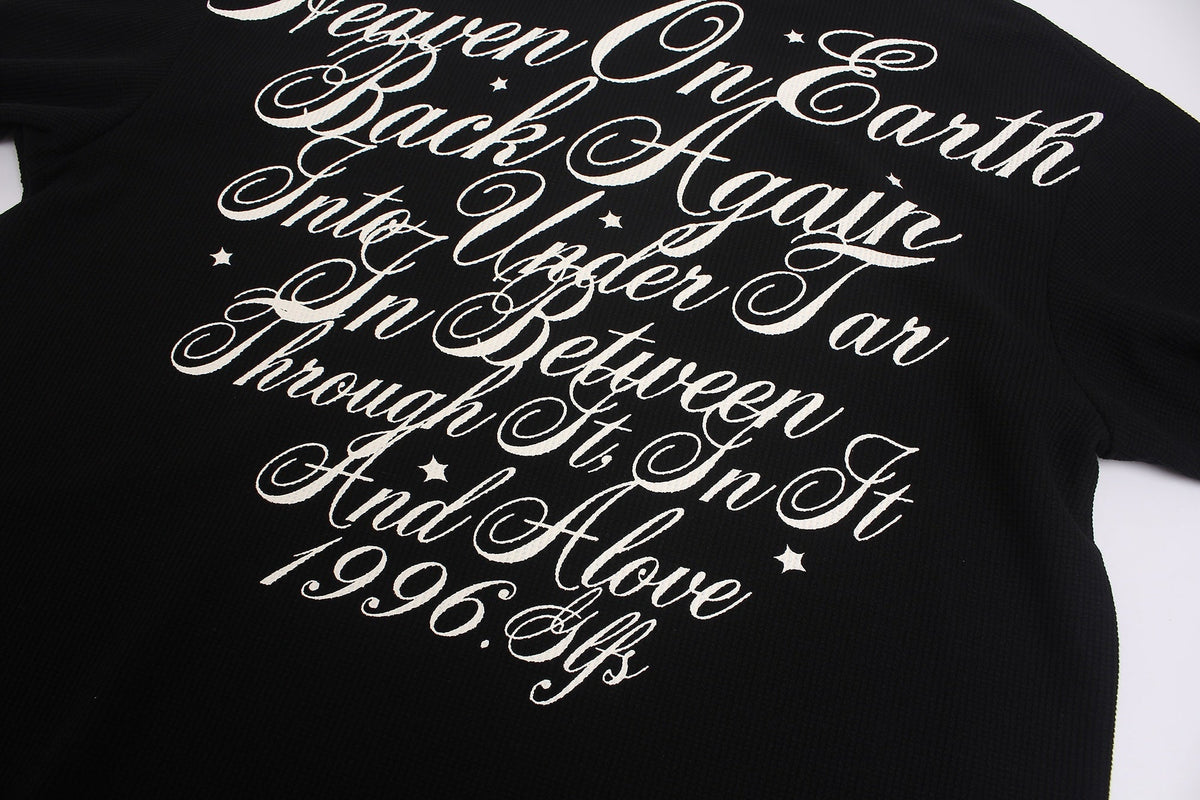 Heaven On Earth
Back Again
Into Under Tar
In Between
Through It, In It
And Alove
1996. Slfs